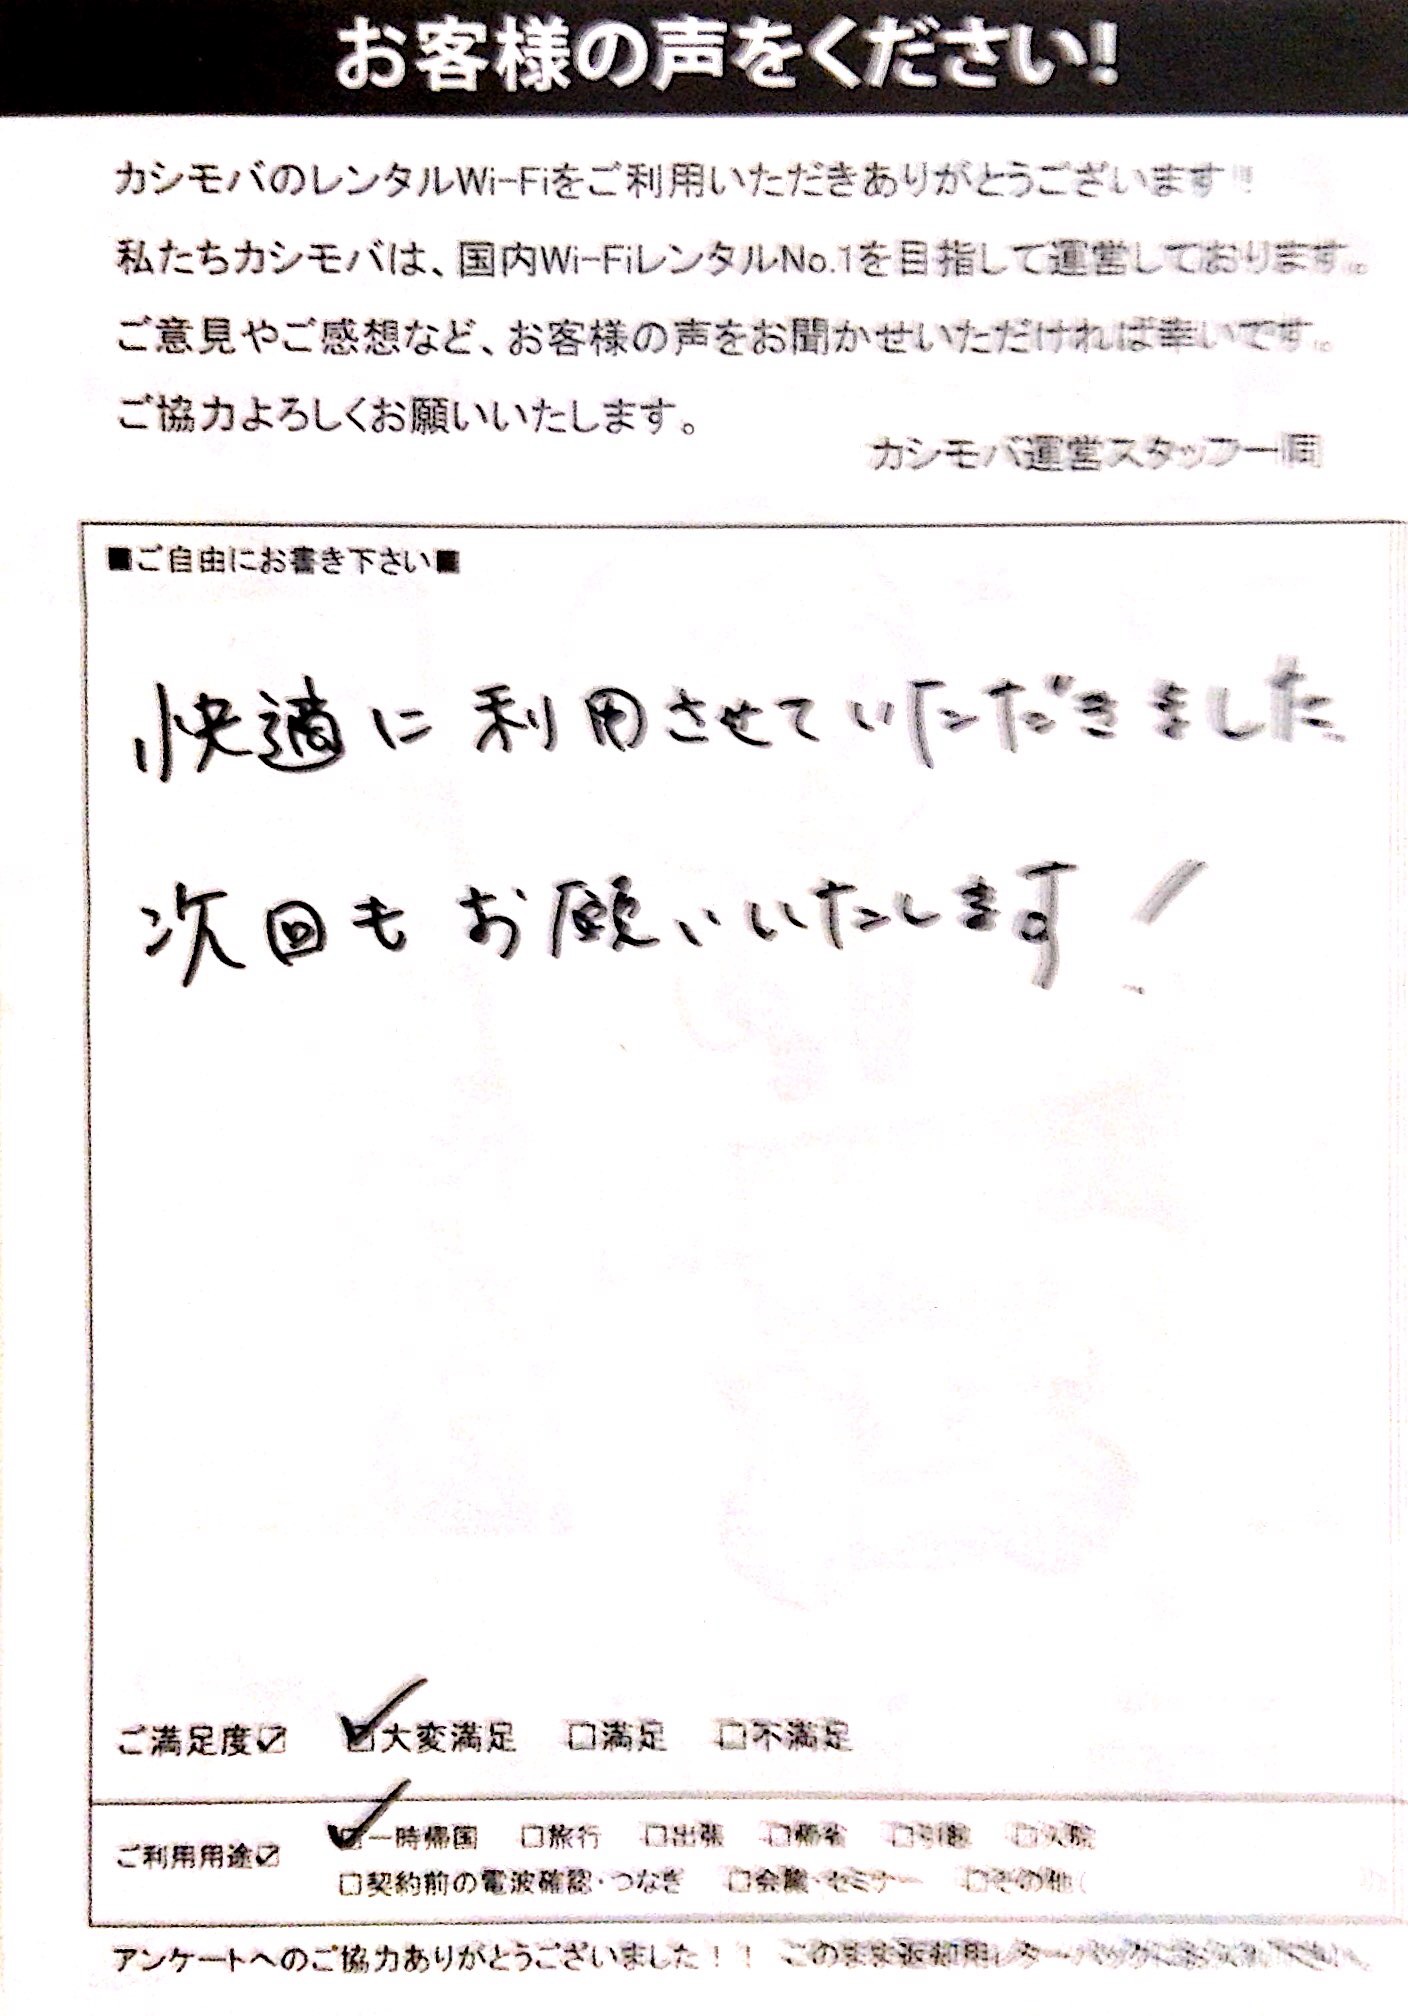 お客様の声をください!
カシモバのレンタルWi-Fiをご利用いただきありがとうございます!!
私たちカシモバは、国内Wi-FiレンタルNo.1を目指して運営しております。
ご意見やご感想など、お客様の声をお聞かせいただければ幸いです。
ご協力よろしくお願いいたします。
カシモバ運営スタッフ一同
■ご自由にお書き下さい■
快適に利用させていただきました
次回もお願いいたします!
ご満足度☑ □大変満足 □満足 □不満足
ご利用用途☑ □一時帰国 □旅行 □出張 □帰省 □引越 □入院
□契約前の電波確認・つなぎ □会議・セミナー □その他(
アンケートへのご協力ありがとうございました!! このまま返却用レターパックにお入れ下さい。